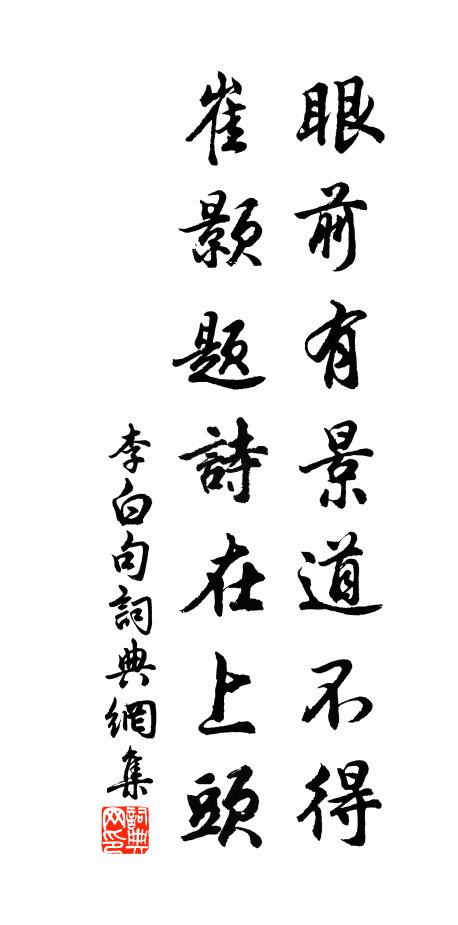 眼前有景道不得
崔顥題詩在上頭
李白句詞典網集
詞典网印